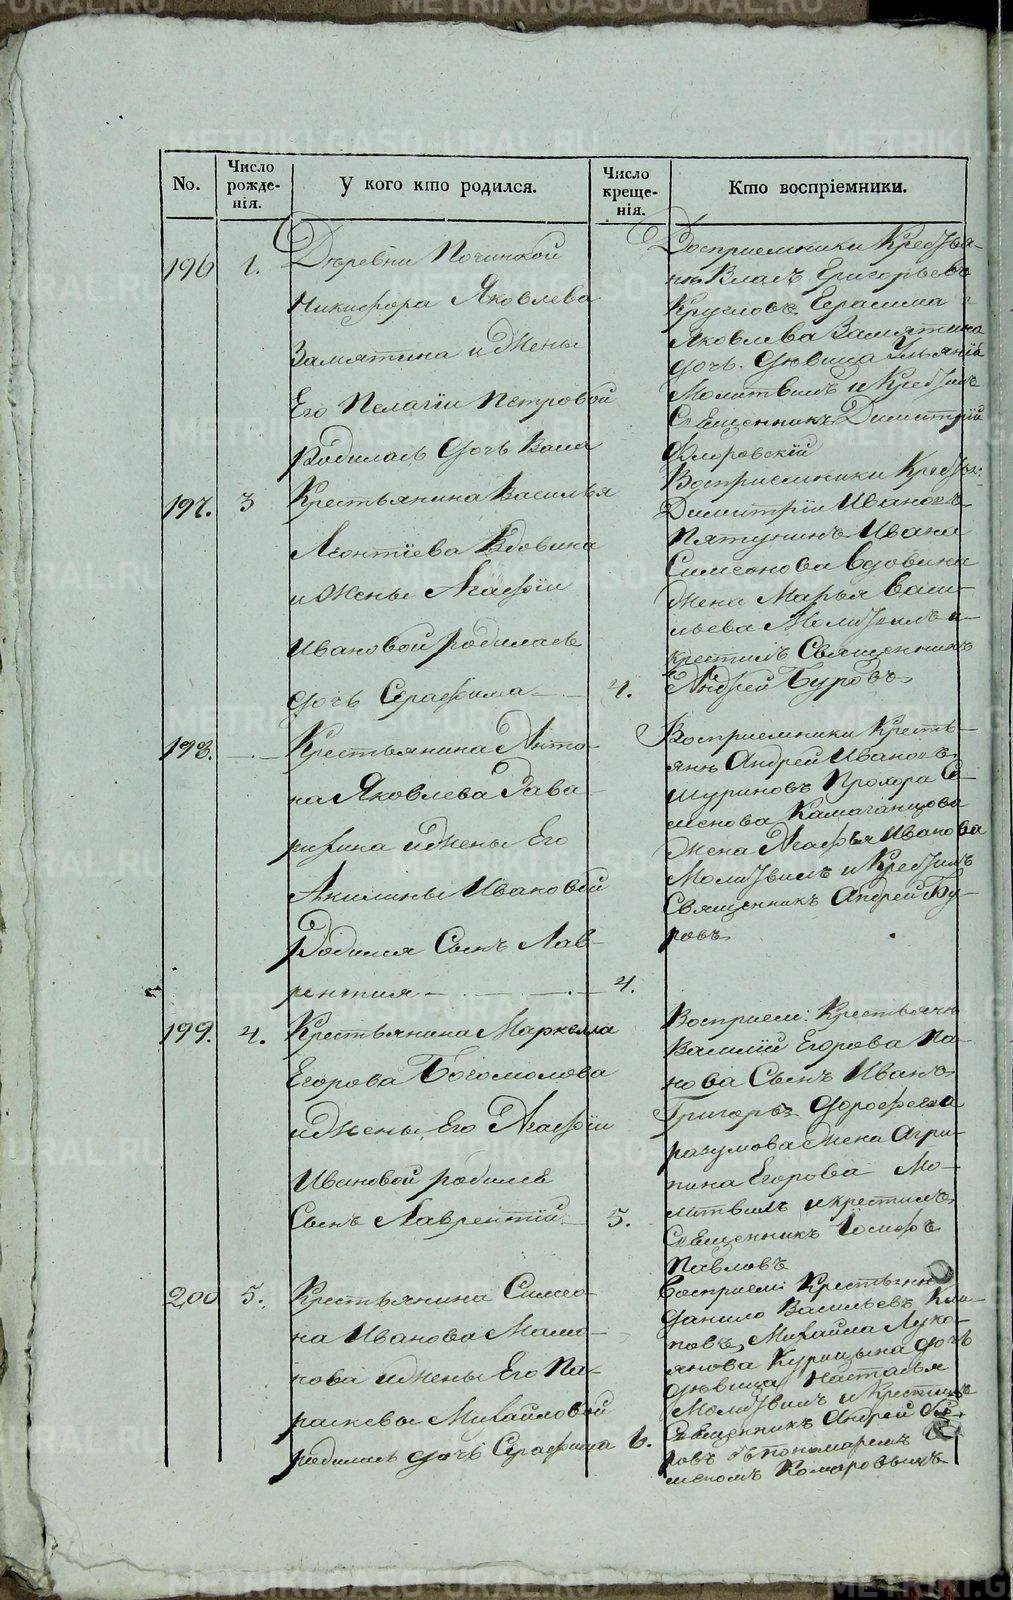 No.
Число рожде-
нія.
У кого кто родился.
Число креще-
нія.
Кто воспріемники.
196 1. Дѣревни Починкой
Никифора Яковлева
Замятина и Жены
Его Пелагіи Петровой
Родилась Дочь Васса
Восприемники Крестья-
нѣ Власъ Григорьевъ
Кругловъ Герасима
Яковлева Замятина
дочь дѣвица Ульянія
Молитвилъ и Крестилъ
Священникъ Димитрій
Флоровскій
197. 3 Крестьянина Василья
Леонтіева Вдовина
и Жены Агафіи
Ивановой родилась
дочь Серафима 4.
Восприемники Крестья:
Димитріи Ивановъ
Пятунинъ Ивана
Симеонова Вдовина
Жена Марья Васи-
льева Молитвилъ и
крестилъ Священникъ
Андрей Буровъ
198. Крестьянина Анто-
на Яковлева
и Жены Его
Акилины Ивановой
Родился Сынъ Лав-
рентия 4.
Восприемники Кресть-
янѣ Андрей Ивановъ
Шуриновъ Прохора Се-
менова
Жена Агафья Иванова
Молитвилъ и Крестилъ
Священникъ Андрей Бу-
ровъ
199. 4. Крестьянина Маркелла
Егорова Богомолова
и Жены Его Агафіи
Ивановой родился
Сынъ Лаврентій 5.
Восприем: Крестьянѣ
Василий Егорова Па-
нова Сынъ Иванъ
Григорья Дорофеева
разумова Жена Агри-
пина Егорова Мо-
литвилъ и крестилъ
Священникъ Іосифъ
Павловъ
200 5. Крестьянина Симео-
на Иванова Мамо-
нова и Жены Его Па-
раскевы Михайловой
родилась дочь Серафима 6.
Восприем: Крестьянѣ
Данило Васильевъ Кли-
повъ, Михаила Луко-
янова Курицына дочь
дѣвица Насталья
Молитвилъ и Крестилъ
Священникъ Андрей Бу-
ровъ съ пономаремъ
Комаровымъ
METRIKI.GASO-URAL.RU